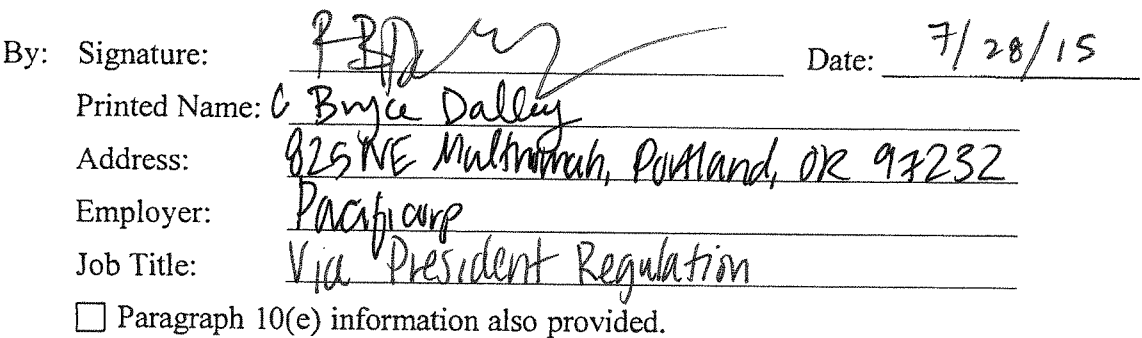 By: Signature: Date: 7/28/15
Printed Name: C Bryce Dalley
Address: 825 NE Multnomah, Portland, OR 97232
Employer: Pacificorp
Job Title: Vice President Regulation
☐ Paragraph 10(e) information also provided.